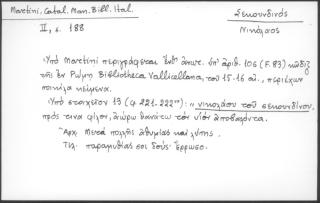 Martini, Catal. Man. Bibl. Ital.
Σεκουνδινός
II, σ. 188
Νικόλαος
Ὑπό Martini περιγράφεται ὑπ' ἀριθ. 106 (F. 83) κῶδιξ
τῆς ἐν Ρώμῃ Bibliotheca Vallicellana, τοῦ 15-16 αἰ., περιέχων
ποικίλα κείμενα.
Ὑπό στοιχεῖον 13 (φ. 221-222) : "νικολάου τοῦ σεκουνδίνου,
πρός τινα φίλον, ἀώρῳ θανάτῳ τόν υἱόν ἀποβαλόντα.
Ἀρχ. Μετά πολλῆς ἀθυμίας καί λύπης.
Τελ. παραμυθίας σοι δούς. Ἔρρωσο.